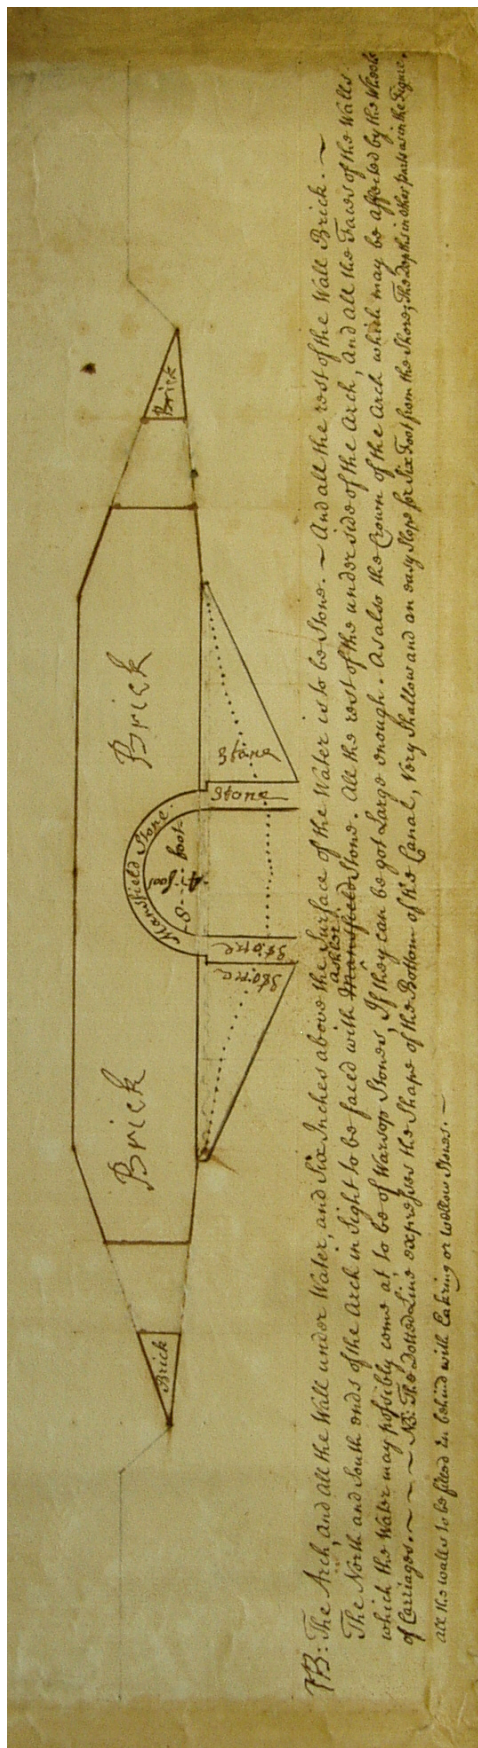 Brick
Brick
Brick
Brick
Mansfield Stone.
8 foot
4 foot
Stone
Stone
Stone
Stone
NB: The Arch, and all the Wall under Water, and Six Inches above the Surface of the Water is to be Stone. ~ And all the rest of the Wall Brick. ~
ashlor
The North and South ends of the Arch in sight to be faced with Mansfield Stone. All the rest of the under side of the Arch, And all the Faces of the Walls
which the Water may possibly come at to be of Warsop Stones, If they can be got Large enough. As also the Crown of the Arch which may be affected by the Wheels
of Carriages. ~ ~ ~ NB: The Dotted Line expresses the Shape of the Bottom of the Canal, Very Shallow and an easy Slope for Six Foot from the Shore; The depths in other parts as in the Figure.
all the walls to be filed in behind with Eakring or wellow stones. ~